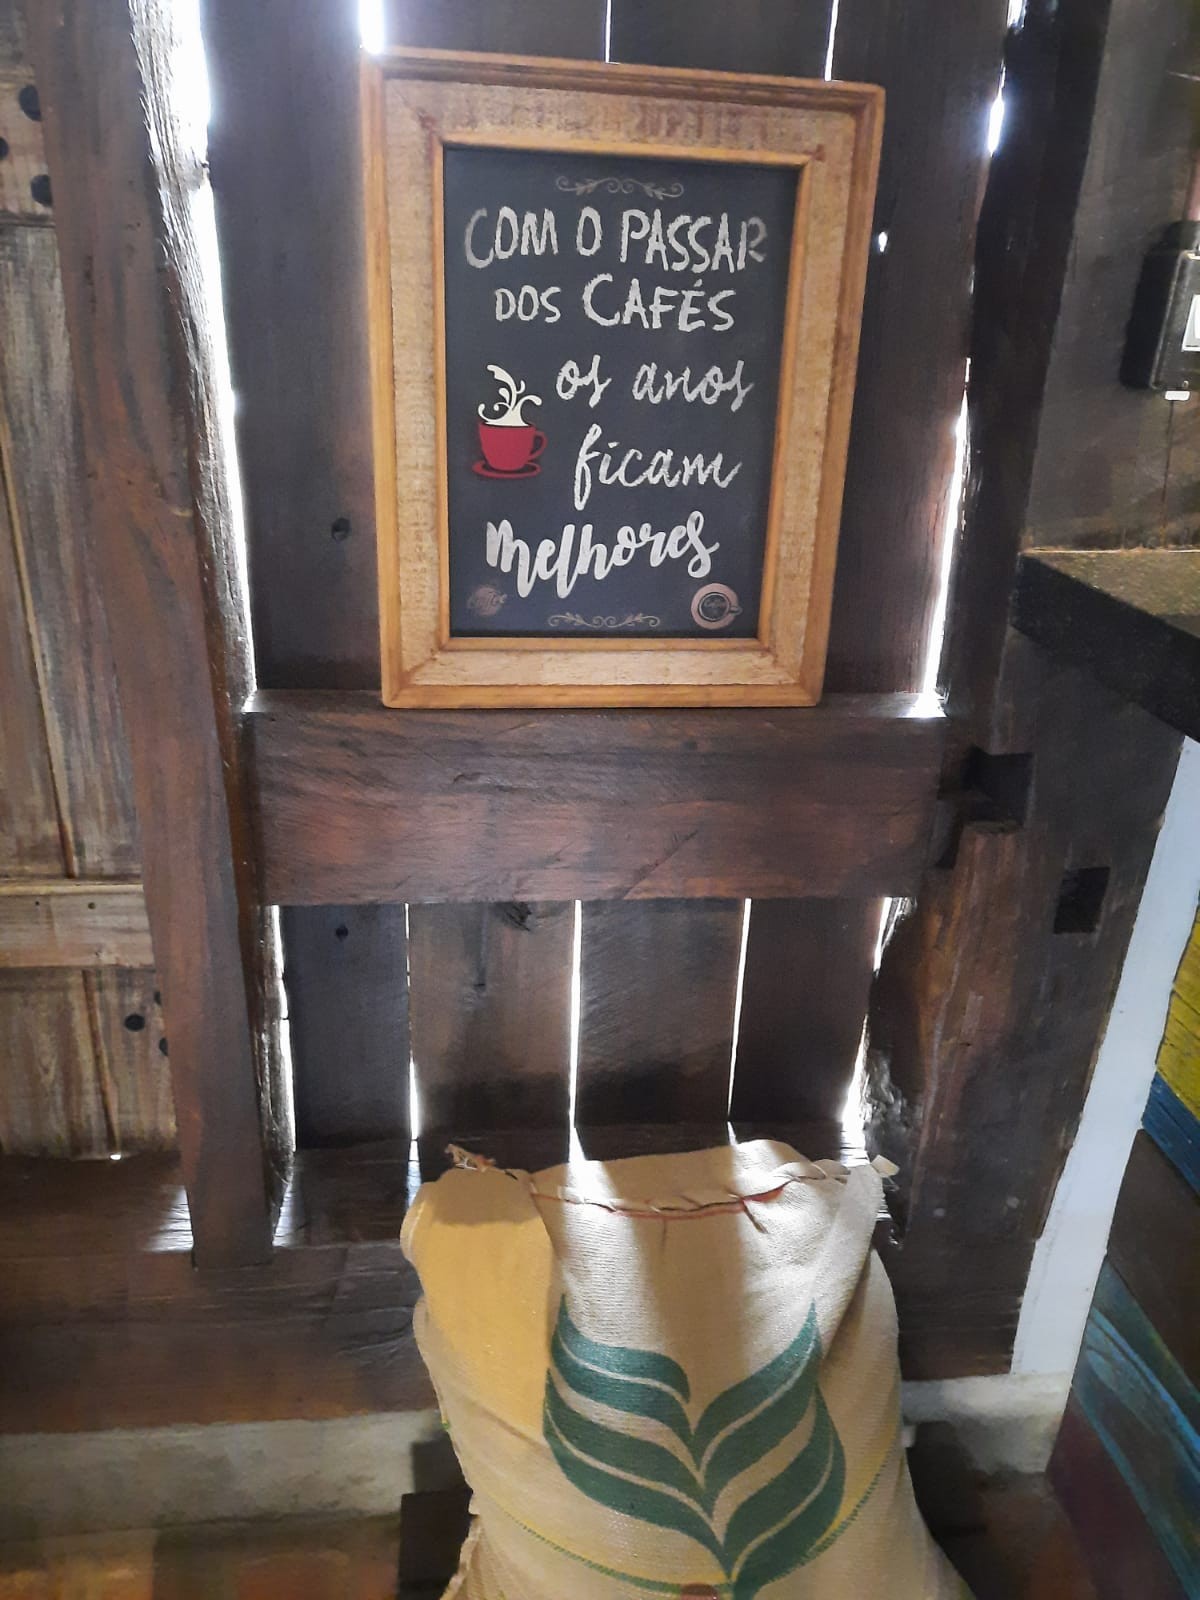 COM O PASSAR
DOS CAFÉS
os anos
ficam
melhores
Coffee